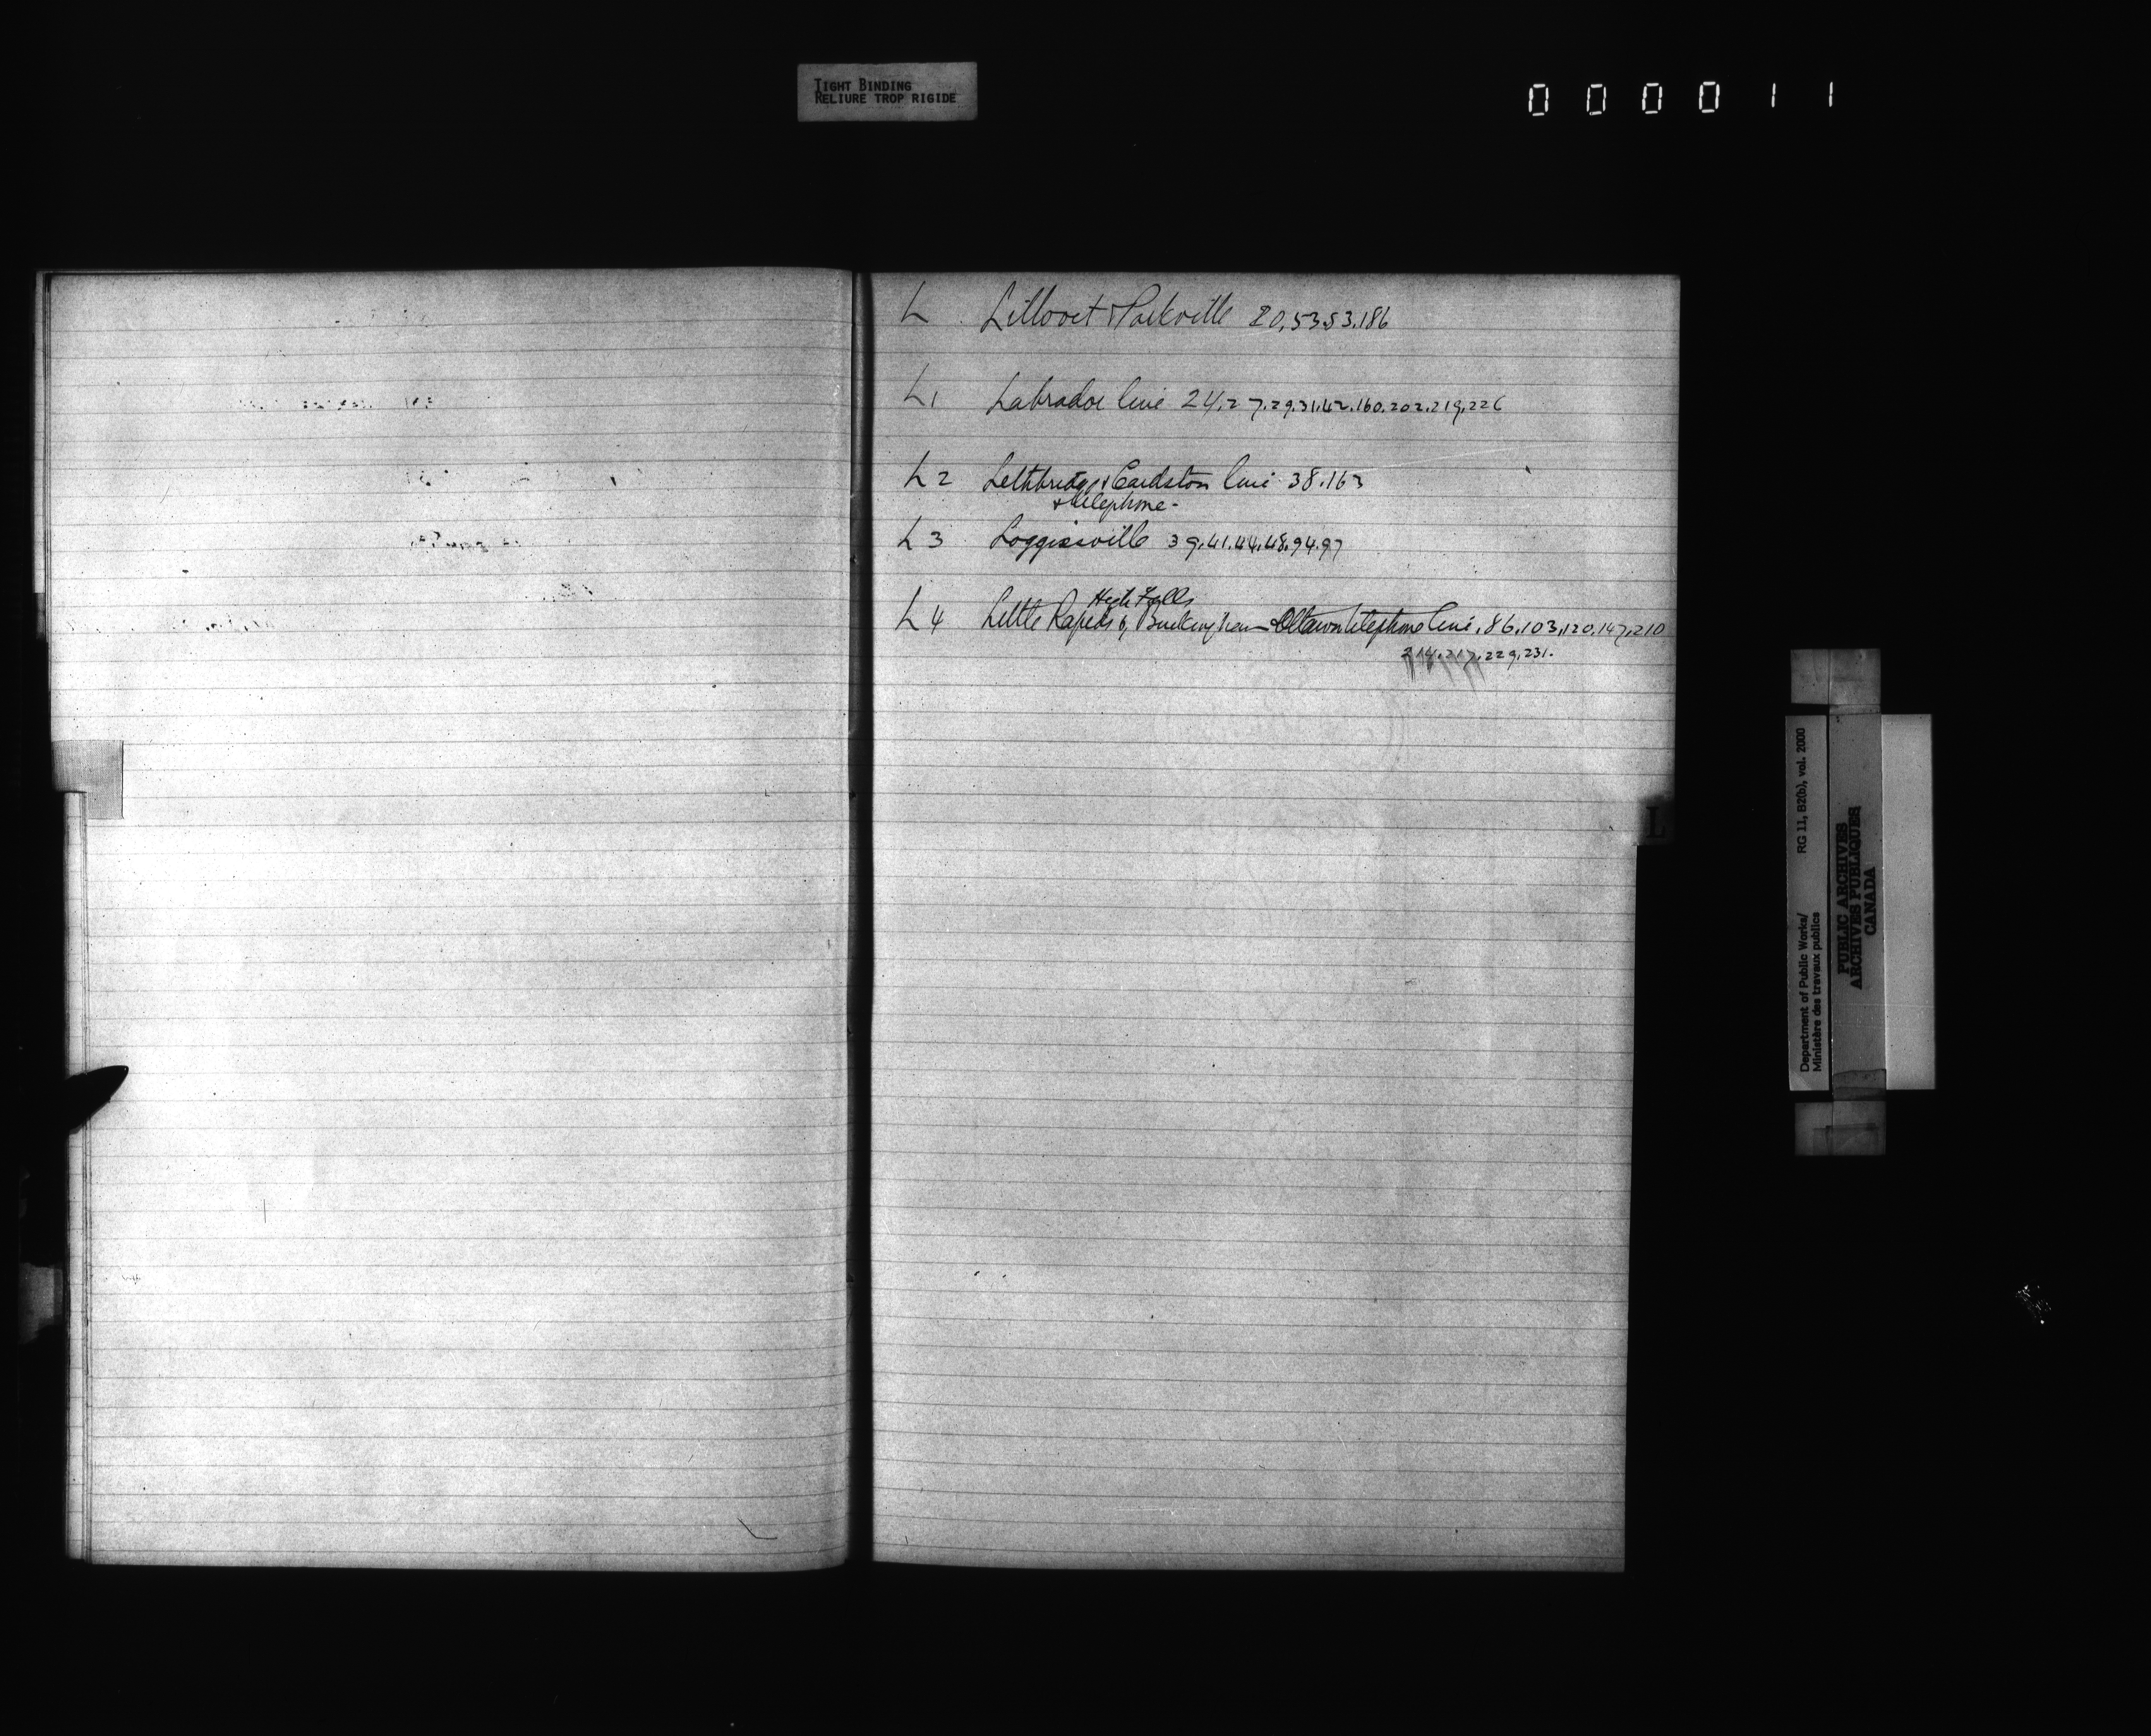 TIGHT BINDING
RELIURE TROP RIGIDE
000011
L Lillooet & Parkville 20,53.53.186
L1 Labrador line 24.27.29.31.42.160.202.219.226
L2 Lethbridge & Cardston line 38.163
& telephone -
L3 Loggieville 39.41.44.48.94.97
High Falls
L4 Little Rapids Buckingham Ottawa telephone line, 86,103,120,147,210
214.217.229.231.
L
Department of Public Works/ RG 11, B2(b), vol. 2000
Ministère des travaux publics
PUBLIC ARCHIVES
ARCHIVES PUBLIQUES
CANADA